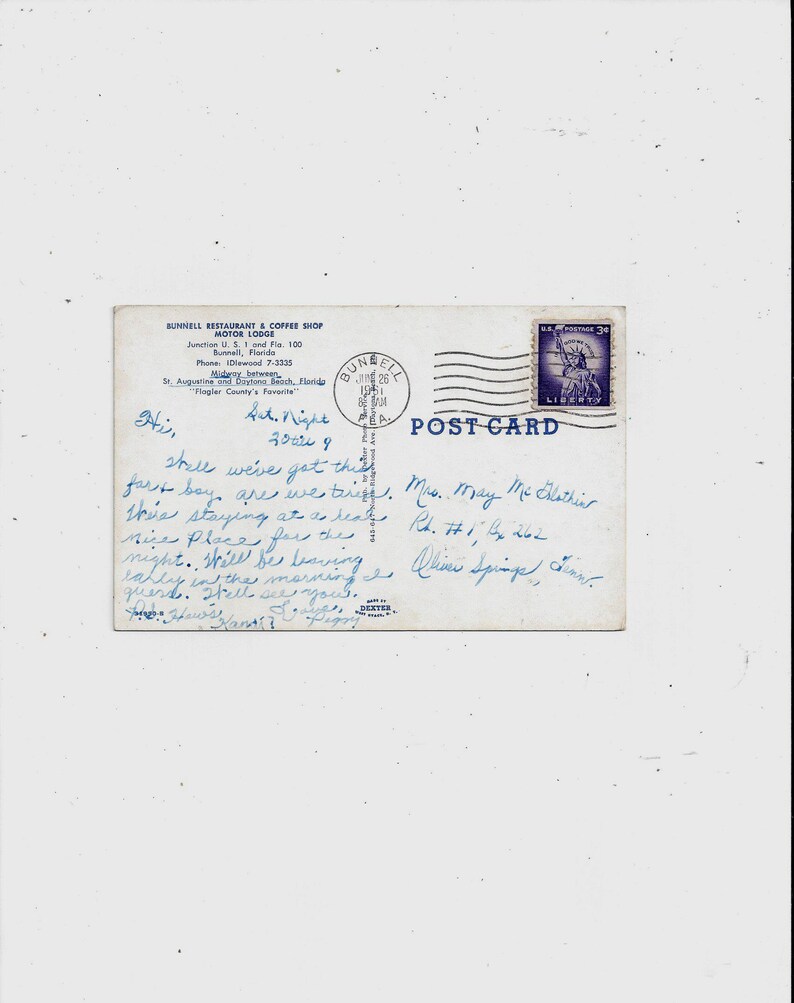 BUNNELL RESTAURANT & COFFEE SHOP
MOTOR LODGE
Junction U. S. 1 and Fla. 100
Bunnell, Florida
Phone: IDlewood 7-3335
Midway between
St. Augustine and Daytona Beach, Florida
"Flagler County's Favorite"
Hi,
Sat. Night
20 till 9
Well we've got this
far & boy are we tired.
We're staying at a real
nice Place for the
night. We'll be leaving
early in the morning I
guess. We'll see you.
Love,
P.S. How's
Peggy
Pub. by Dexter Photo Service
645-647 North Ridgewood Ave. Daytona Beach,
MADE BY
DEXTER
WEST NYACK, N. Y.
BUNNELL
JUN 26
AM
U.S. POSTAGE 3¢
IN GOD WE TRUST
LIBERTY
POST CARD
Mrs. May McGlothin
Rd. #1, Bx 262
Oliver Springs, Tenn.